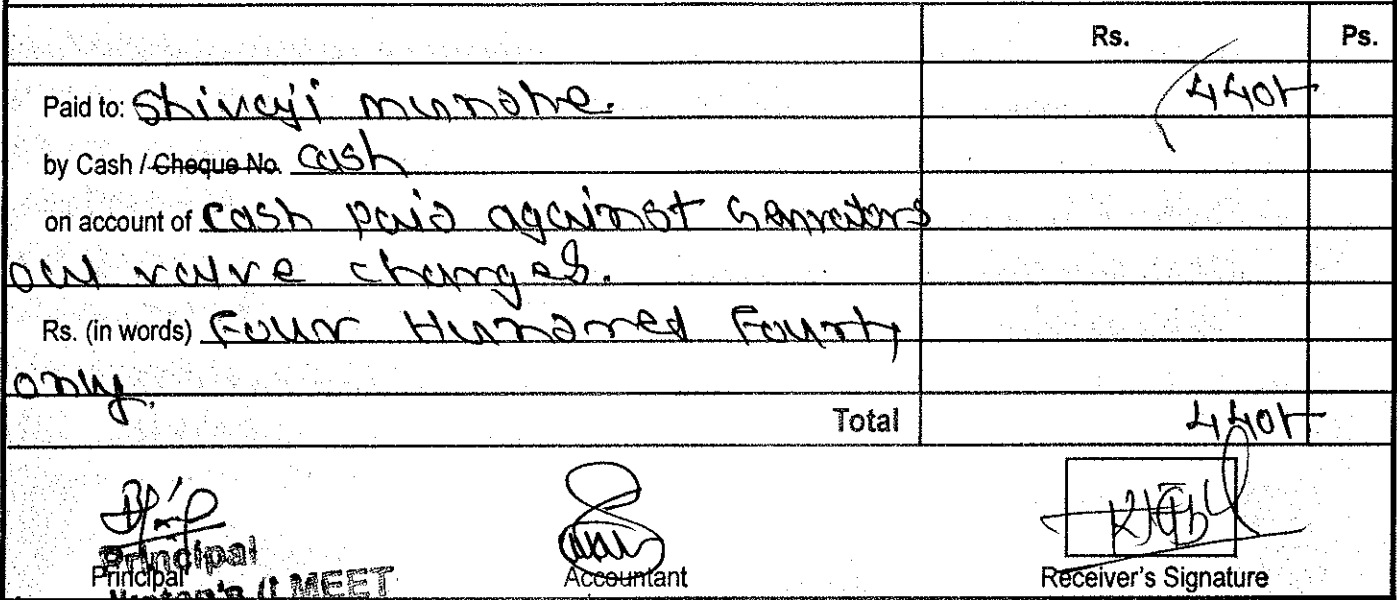 Rs. Ps.
Paid to: Shivaji munohe. 440/-
by Cash / Cheque No. cash
on account of cash paid against Genrators
oul valve changes.
Rs. (in words) Four Hundred Fourty
only.
Total 440/-
Principal
Principal Accountant Receiver's Signature
MEET